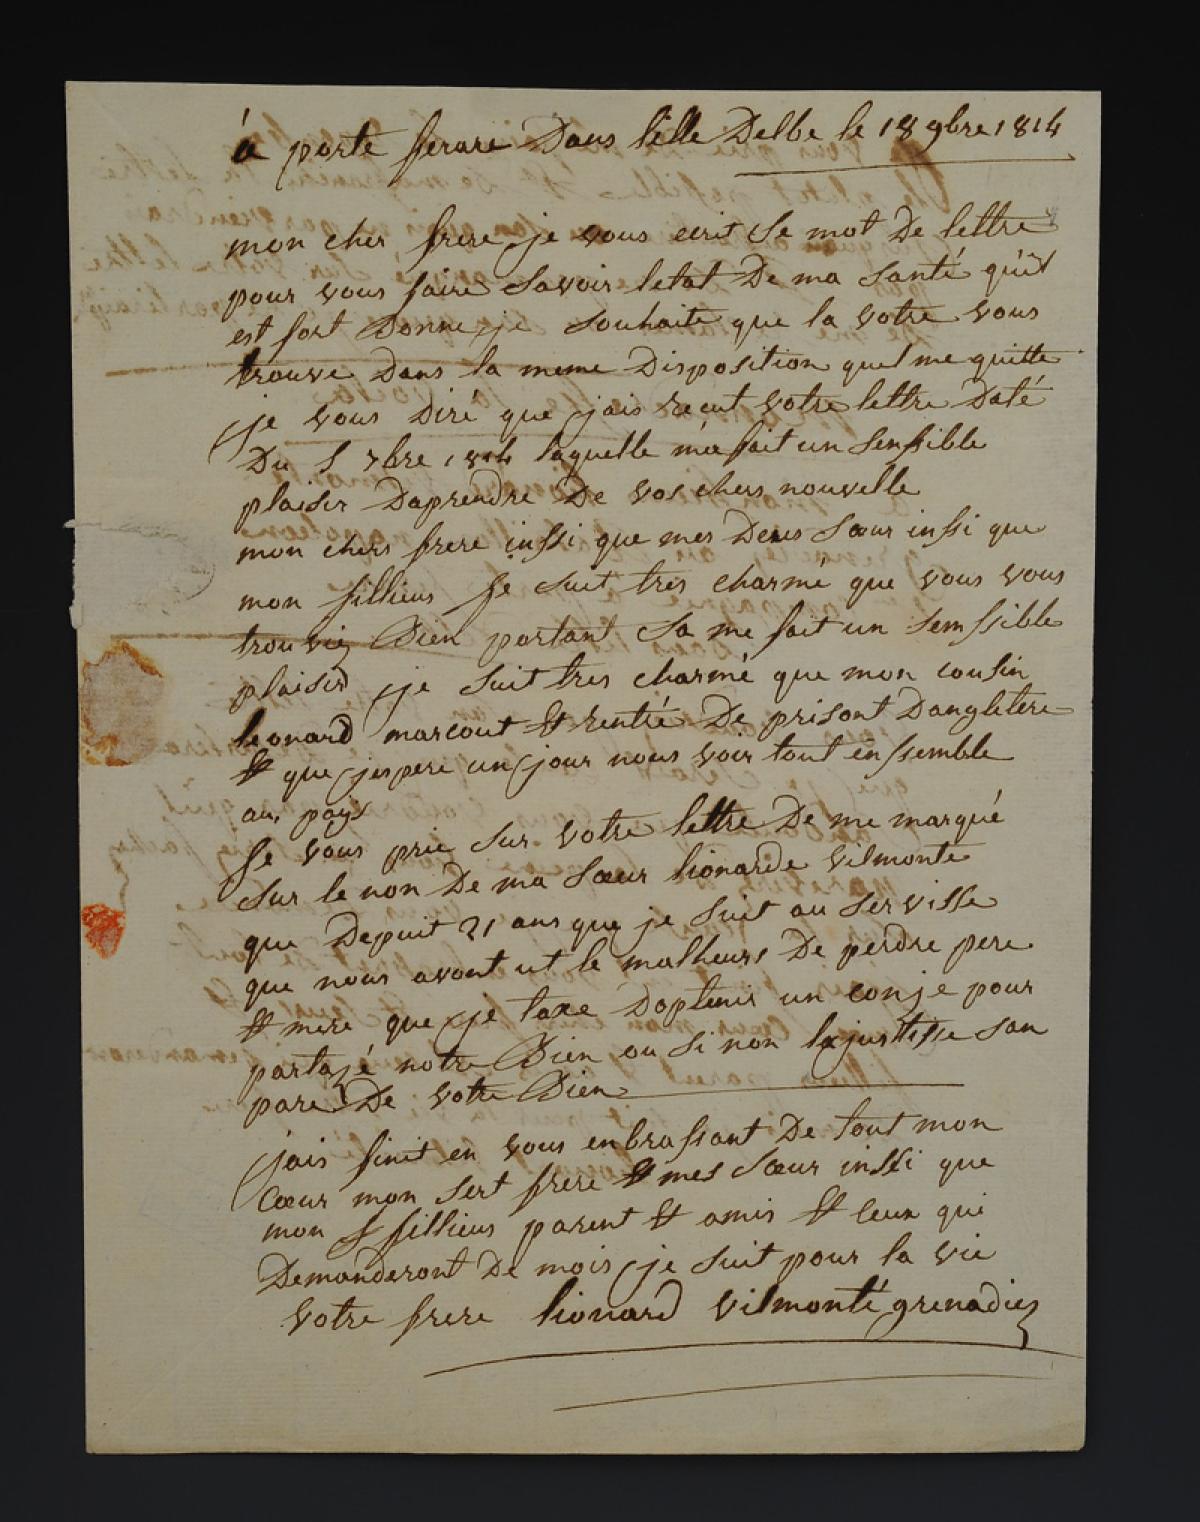 á porte ferare Dans lille Delbe le 18 9bre 1814
mon cher frere je vous ecrit se mot De lettre
pour vous faire savoir letat De ma santé quil
est fort bonne je souhaite que la votre vous
trouve Dans la meme Disposition quel me quitte
je vous Diré que jais recut votre lettre Daté
Du 5 7bre 1814 laquelle ma fait un sensible
plaisir Daprendre De vos chers nouvelle
mon chers frere inssi que mes Deus sœur inssi que
mon fillieus Je suit très charmé que vous vous
trouviez bien portant sa me fait un semssible
plaisir je suit tres charmé que mon cousin
leonard marcout & rentré De prisont Dangletere
& que jespere un jour nous voir tout enssemble
au pays
Je vous prie sur votre lettre De me marqué
sur le non De ma sœur lionarde vilmonte
que Depuit 21 ans que je suit au servisse
que nous avont ut le malheurs De perdre pere
& mere que je taxe Doptenir un conje pour
partajé notre bien ou si non la justisse san
pare De votre bien
jais finit en vous enbrassant De tout mon
cœur mon sert frere & mes sœur inssi que
mon fillieus parent & amis & ceux qui
Demanderont De mois je suit pour la vie
votre frere lionard vilmonté grenadiez